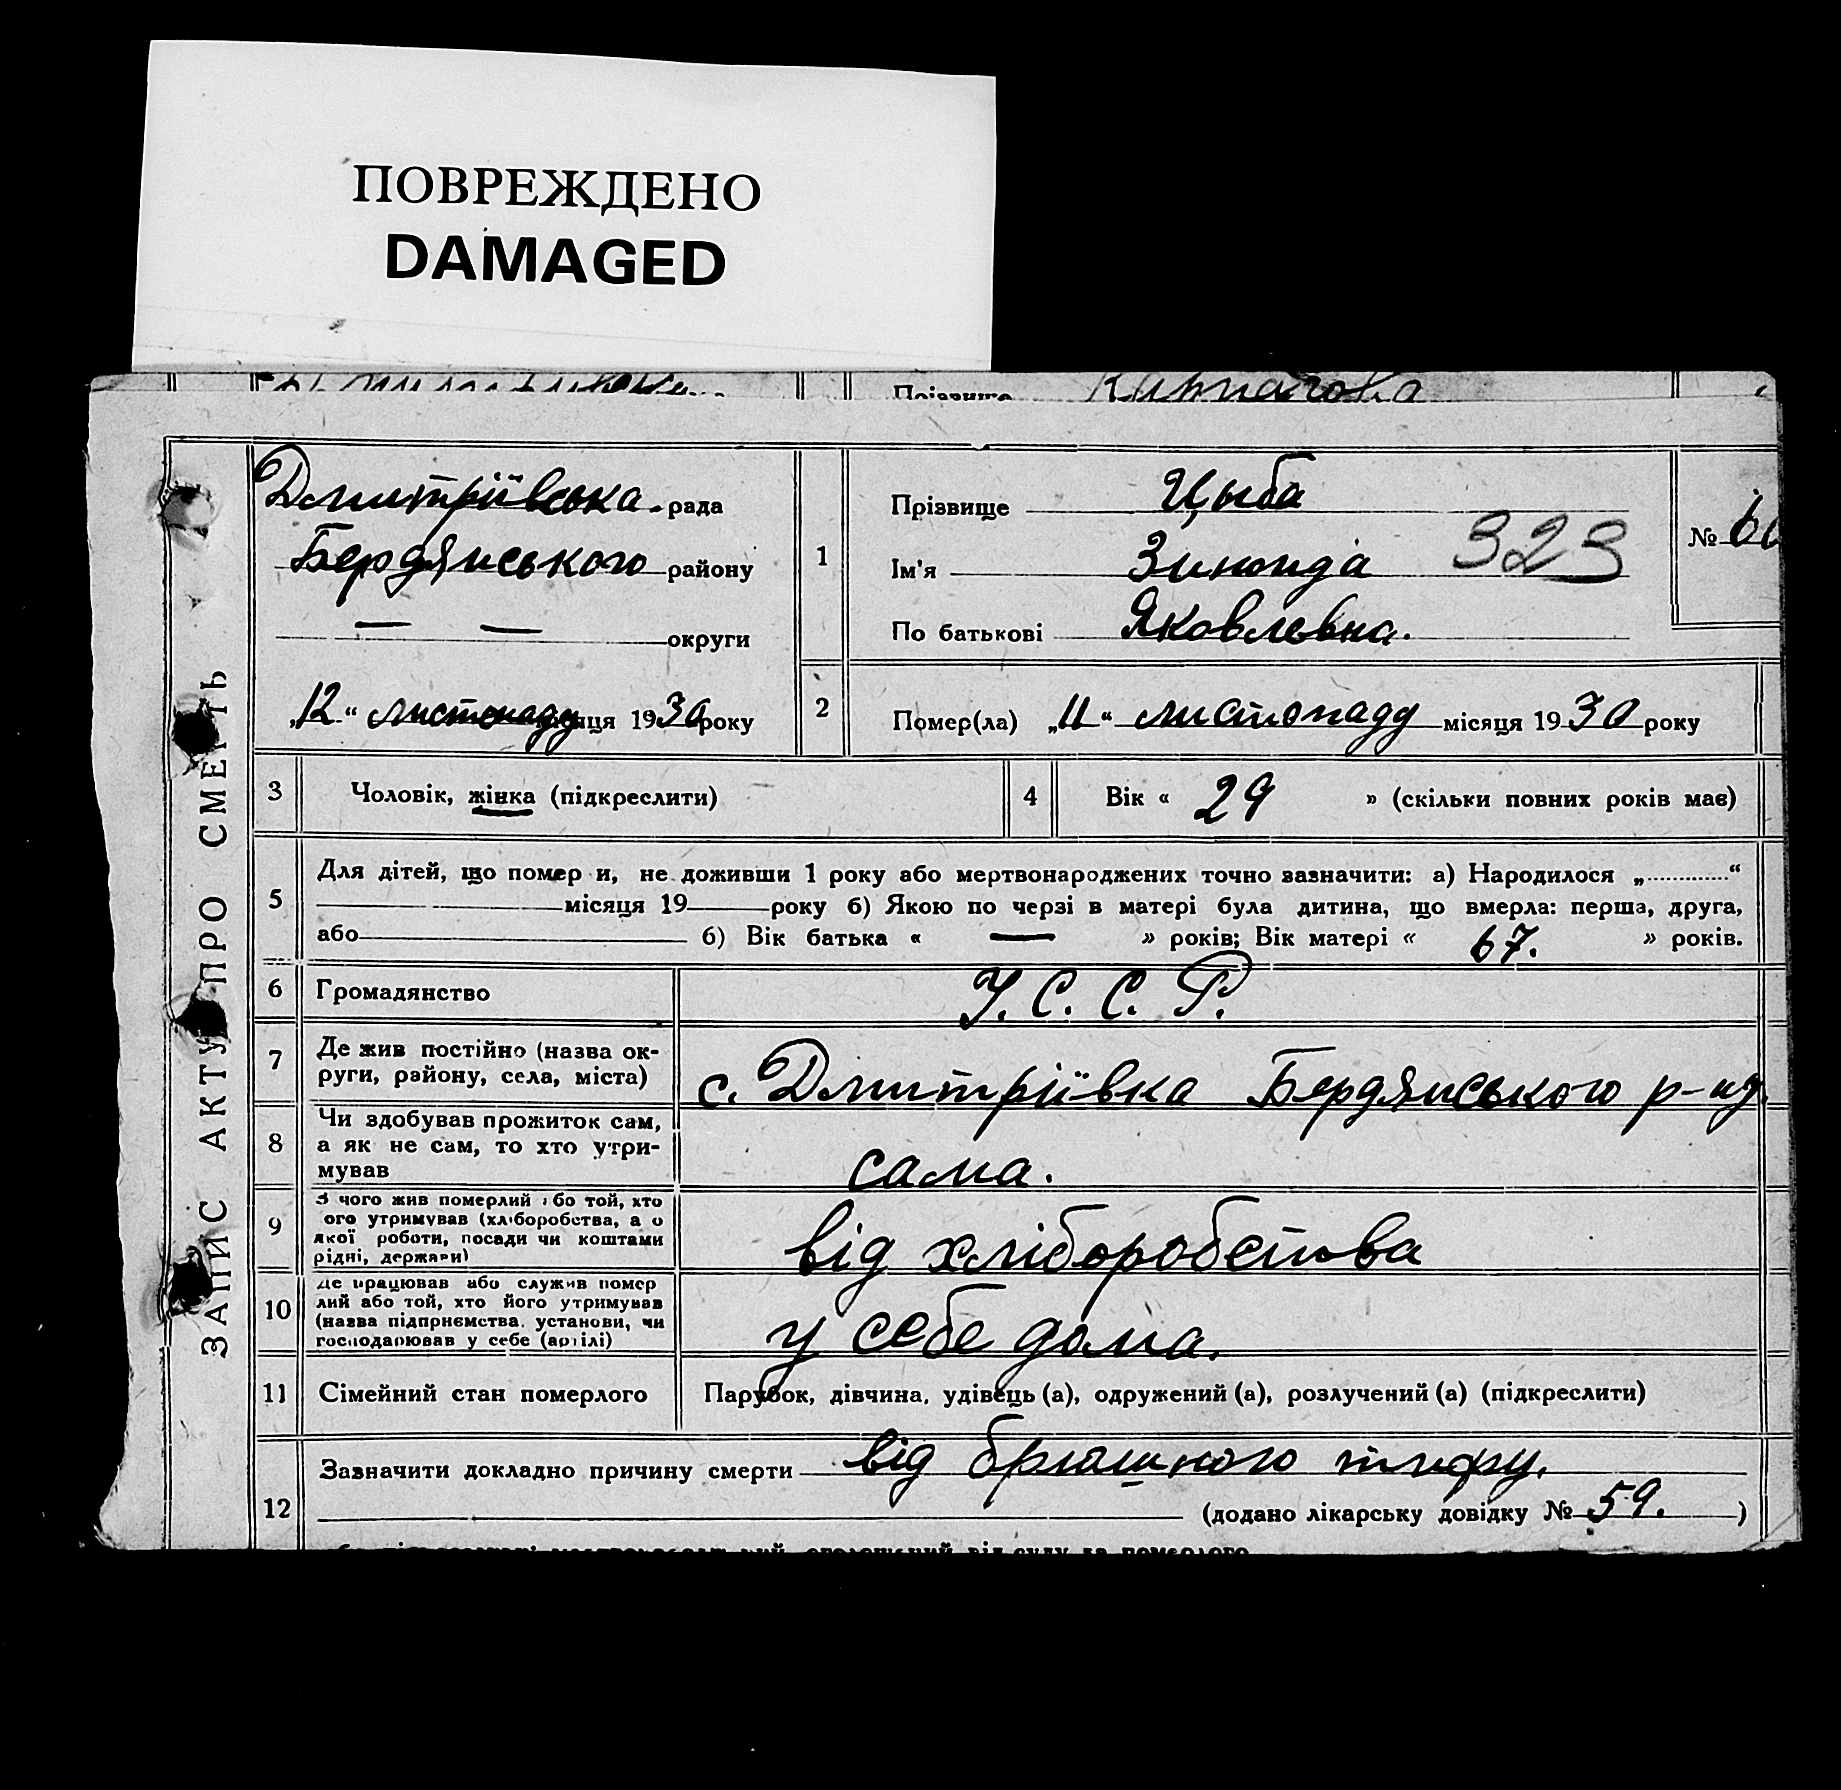 ПОВРЕЖДЕНО
DAMAGED
Прізвище
Дмитріївська рада
Бердянського району
— — округи
„12“ листопаду місяця 1930 року
1
Прізвище Цыба
Ім'я Зинаида
323
По батькові Яковлевна.
№ 60
2
Помер(ла) „11“ листопаду місяця 1930 року
ЗАПИС АКТУ ПРО СМЕРТЬ
3
Чоловік, жінка (підкреслити)
4
Вік « 29 » (скільки повних років має)
5
Для дітей, що помер и, не доживши 1 року або мертвонароджених точно зазначити: а) Народилося „............“
місяця 19 року б) Якою по черзі в матері була дитина, що вмерла: перша, друга,
або б) Вік батька « — » років; Вік матері « 67. » років.
6
Громадянство
У. С. С. Р.
7
Де жив постійно (назва ок-
руги, району, села, міста)
с. Дмитріївка Бердянського р-ну.
8
Чи здобував прожиток сам,
а як не сам, то хто утри-
мував
сама.
9
З чого жив померлий або той, хто
його утримував (хліборобства, а о
якої роботи, посади чи коштами
рідні, держави)
від хліборобства
10
Де працював або служив помер
лий або той, хто його утримував
(назва підприємства, установи, чи
господарював у себе (артілі)
у себе дома.
11
Сімейний стан померлого
Парубок, дівчина, удівець (а), одружений (а), розлучений (а) (підкреслити)
12
Зазначити докладно причину смерти від брюшного тифу.
(додано лікарську довідку № 59. )